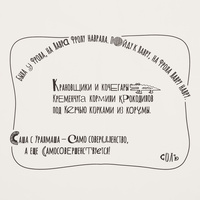 Была у Фрола, на Лавра Фролу наврала, пойду к Лавру, на Фрола Лавру навру.
Крановщики и кочегары
Кременчуга кормили крокодилов
под Керчью корками из корзины.
Саша с Уралмаша – само совершенство,
а еще самосовершенствуется!